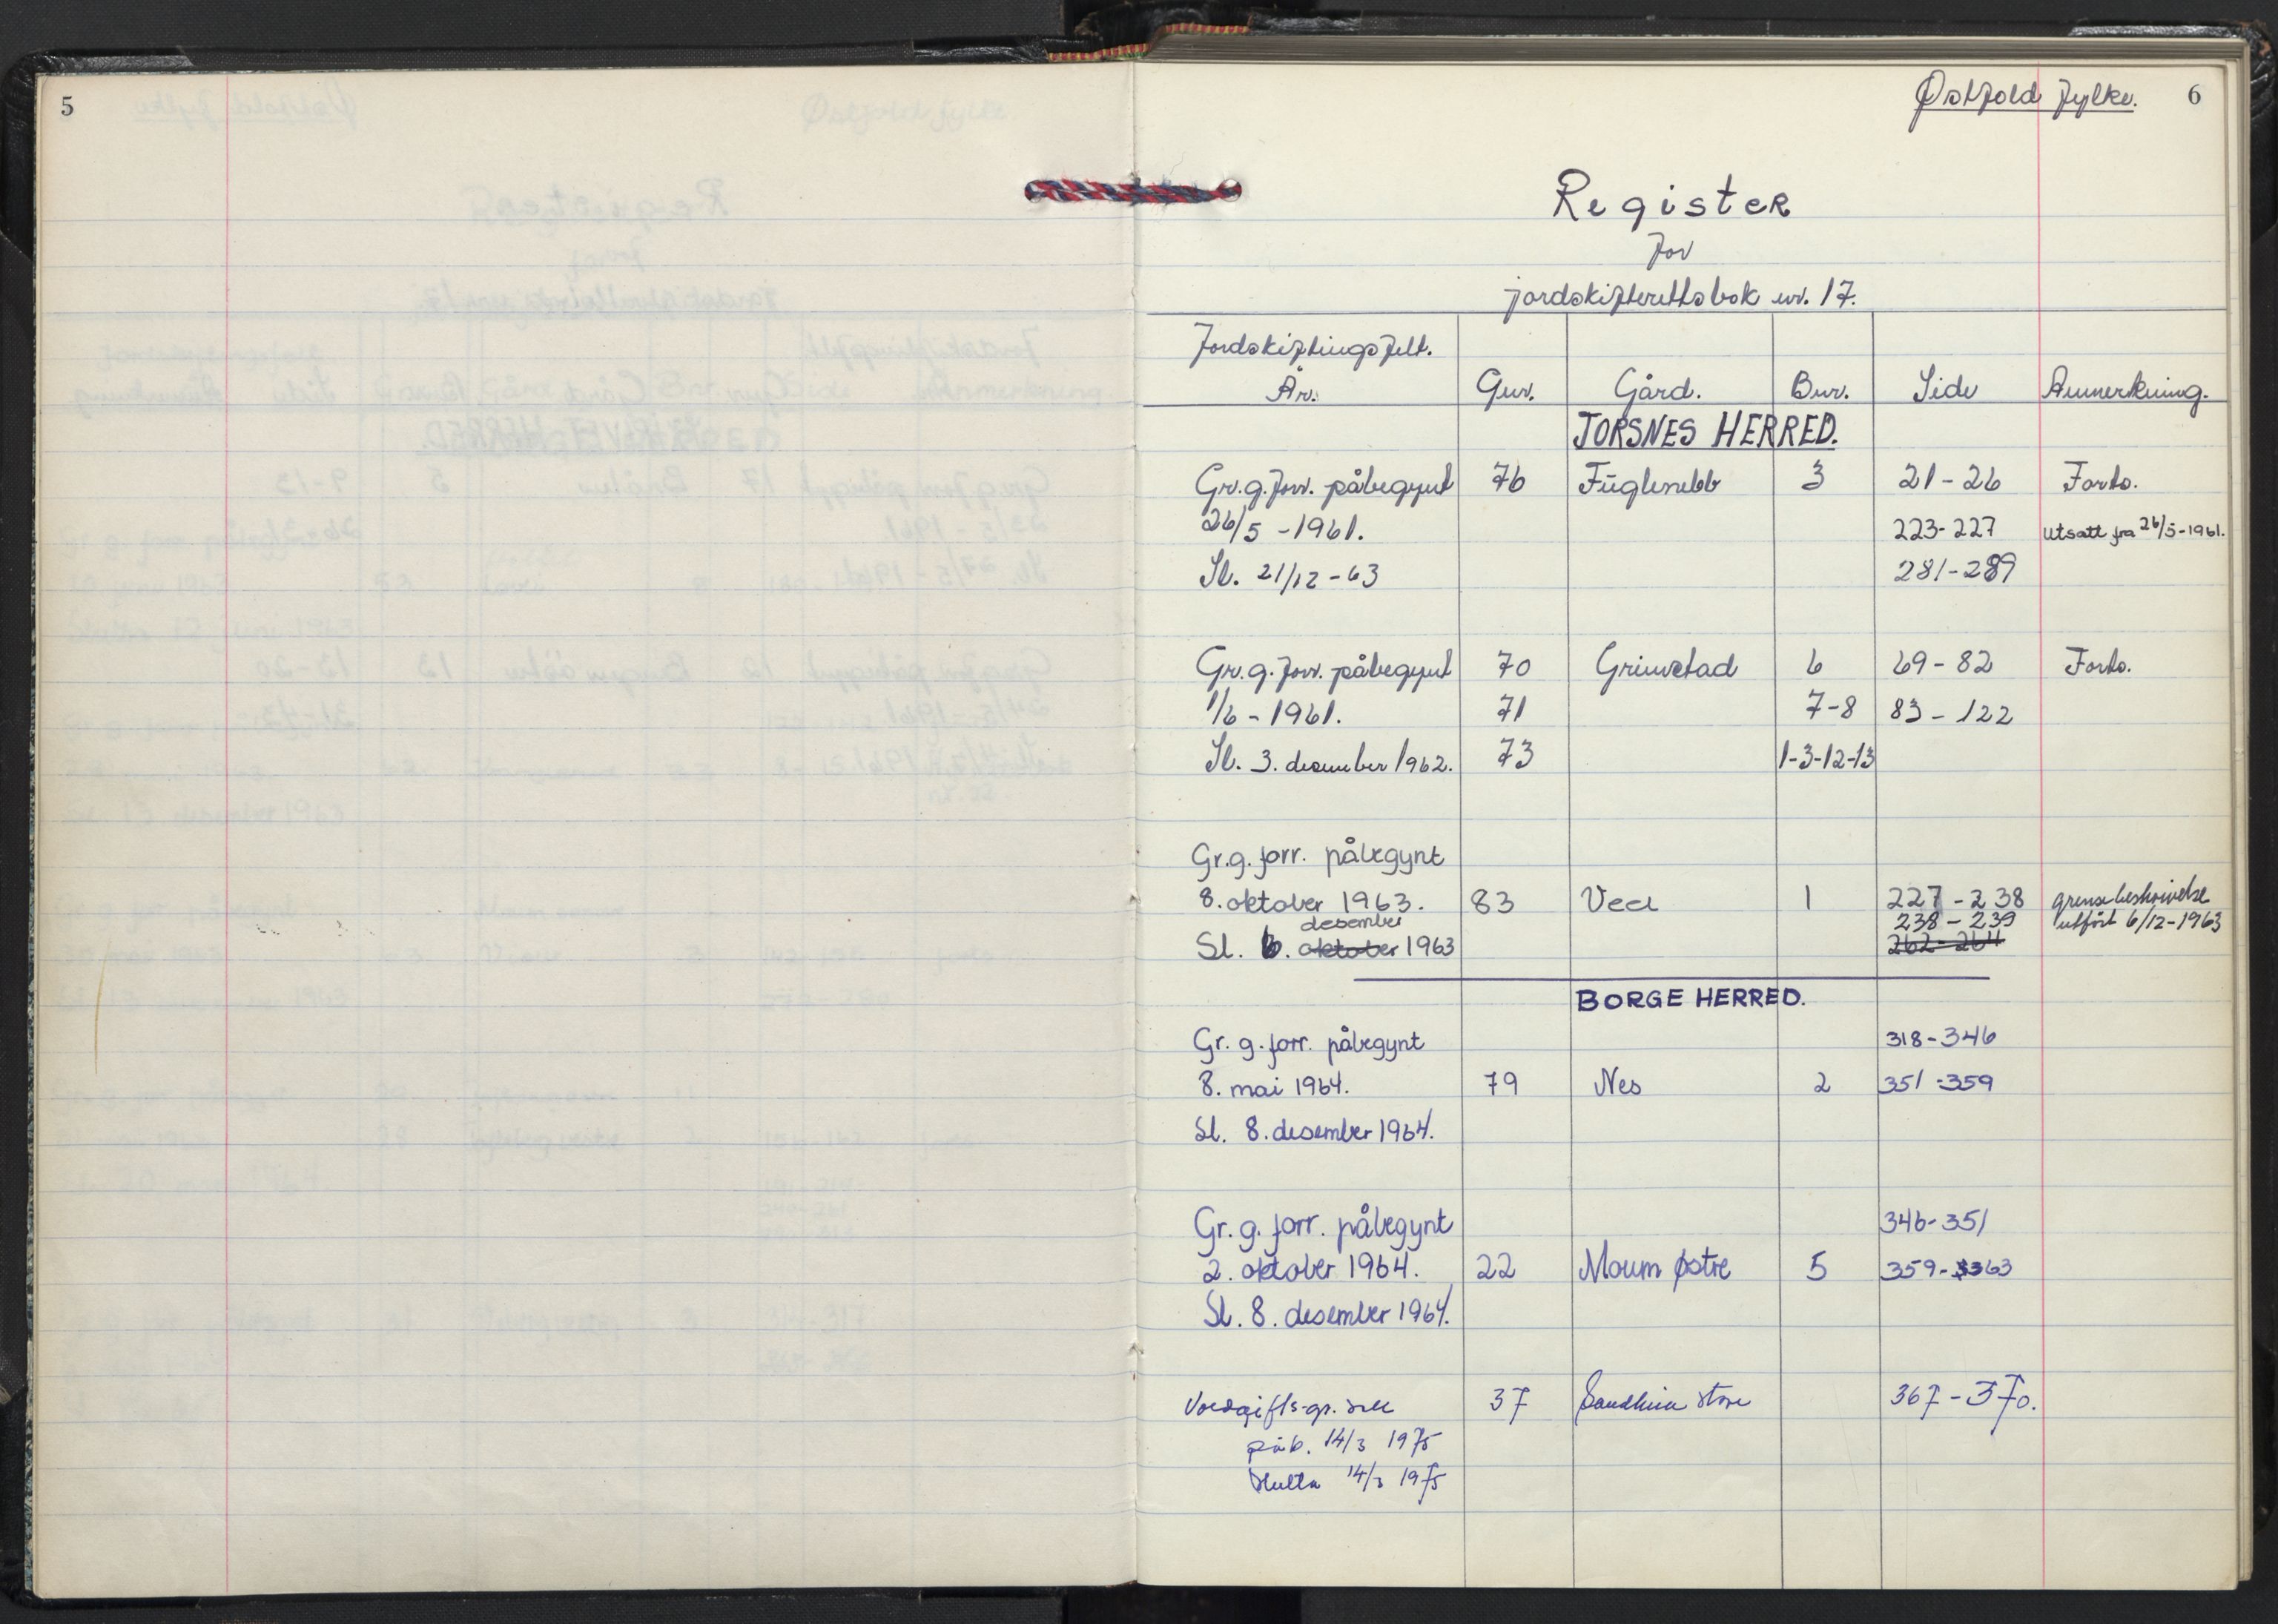 5
Østfold fylke. 6
Register
for
jordskifterettsbok nr. 17.
Jordskiftingsfelt.
År. Gnr. Gård. Bnr. Side Anmerkning.
TORSNES HERRED.
Gr.g.forr. påbegynt 76 Fuglenebb 3 21-26 Forts.
26/5 -1961. 223-227 utsatt fra 26/5-1961.
Sl. 21/12-63 281-289
Gr.g.forr. påbegynt 70 Grimstad 6 69-82 Forts.
1/6 - 1961. 71 7-8 83-122
Sl. 3. desember 1962. 73 1-3-12-13
Gr.g. forr. påbegynt
8. oktober 1963. 83 Veel 1 227-238 grensebeskrivelse
desember 238-239 utført 6/12-1963
Sl. 6. oktober 1963 262-264
BORGE HERRED.
Gr. g. forr. påbegynt 318-346
8. mai 1964. 79 Nes 2 351-359
Sl. 8. desember 1964.
Gr. g. forr. påbegynt 346-351
2. oktober 1964. 22 Moum østre 5 359-363
Sl. 8. desember 1964.
37 store 367-370.
påb. 14/3 1975
slutta 14/3 1975